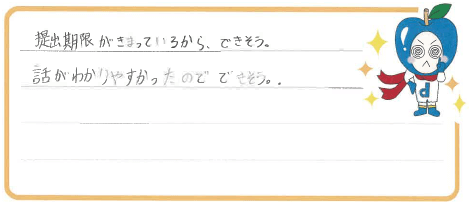 提出期限がきまっているから、できそう。
話がわかりやすかったのでできそう。.
d